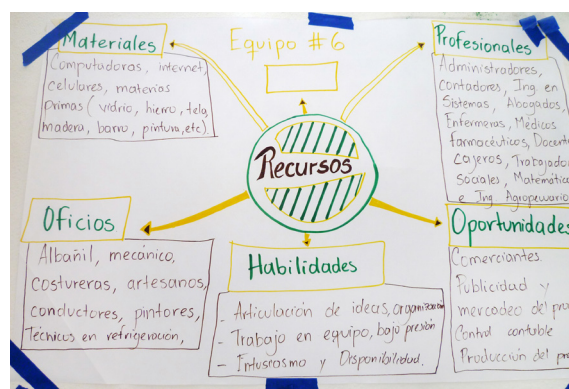 Equipo #6
Materiales
Computadoras, internet,
celulares, materias
primas (vidrio, hierro, tela,
madera, barro, pintura, etc)
Profesionales
Administradores,
contadores, Ing. en
Sistemas, Abogados,
Enfermeras, Médicos
farmacéuticos, Docent
cajeros, Trabajador
sociales, Matemátic
e Ing. Agropecuario
Recursos
Oficios
Albañil, mecánico,
costureras, artesanos,
conductores, pintores,
Técnicos en refrigeración,
Habilidades
- Articulación de ideas, organización
- Trabajo en equipo, bajo presión
- Entusiasmo y Disponibilidad.
Oportunidades
Comerciantes.
Publicidad y
mercadeo del pro
Control contable
Producción del pro